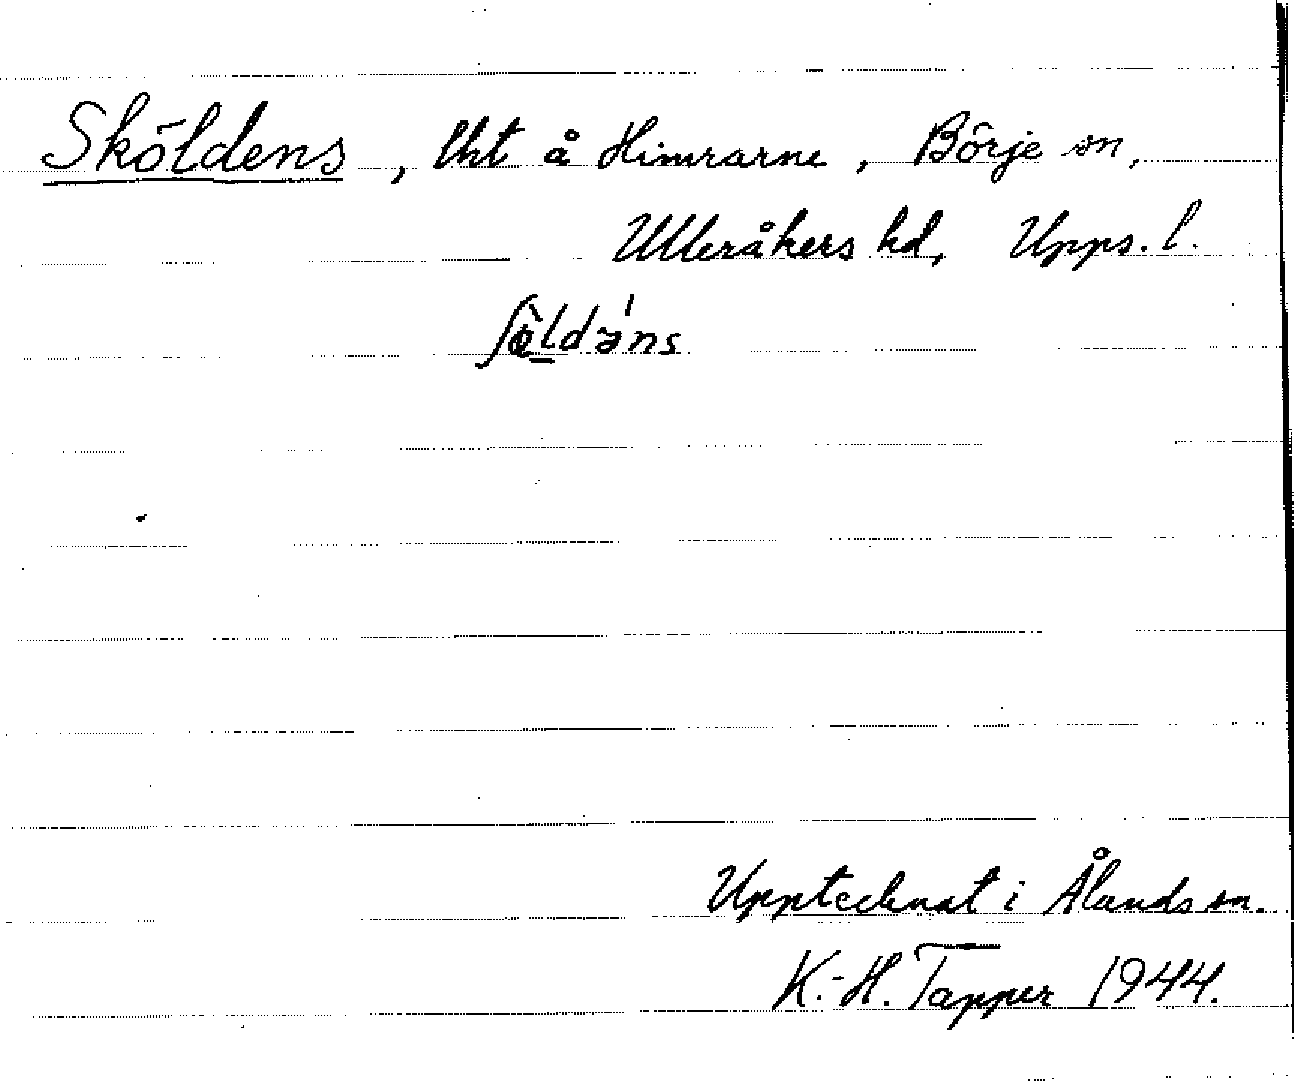 Sköldens, lht å Himrarne, Börje sn,
Ulleråkers hd, Upps. l.
ʃö̀ldə́ns
Upptecknat i Ålands sn.
K.-H. Tapper 1944.